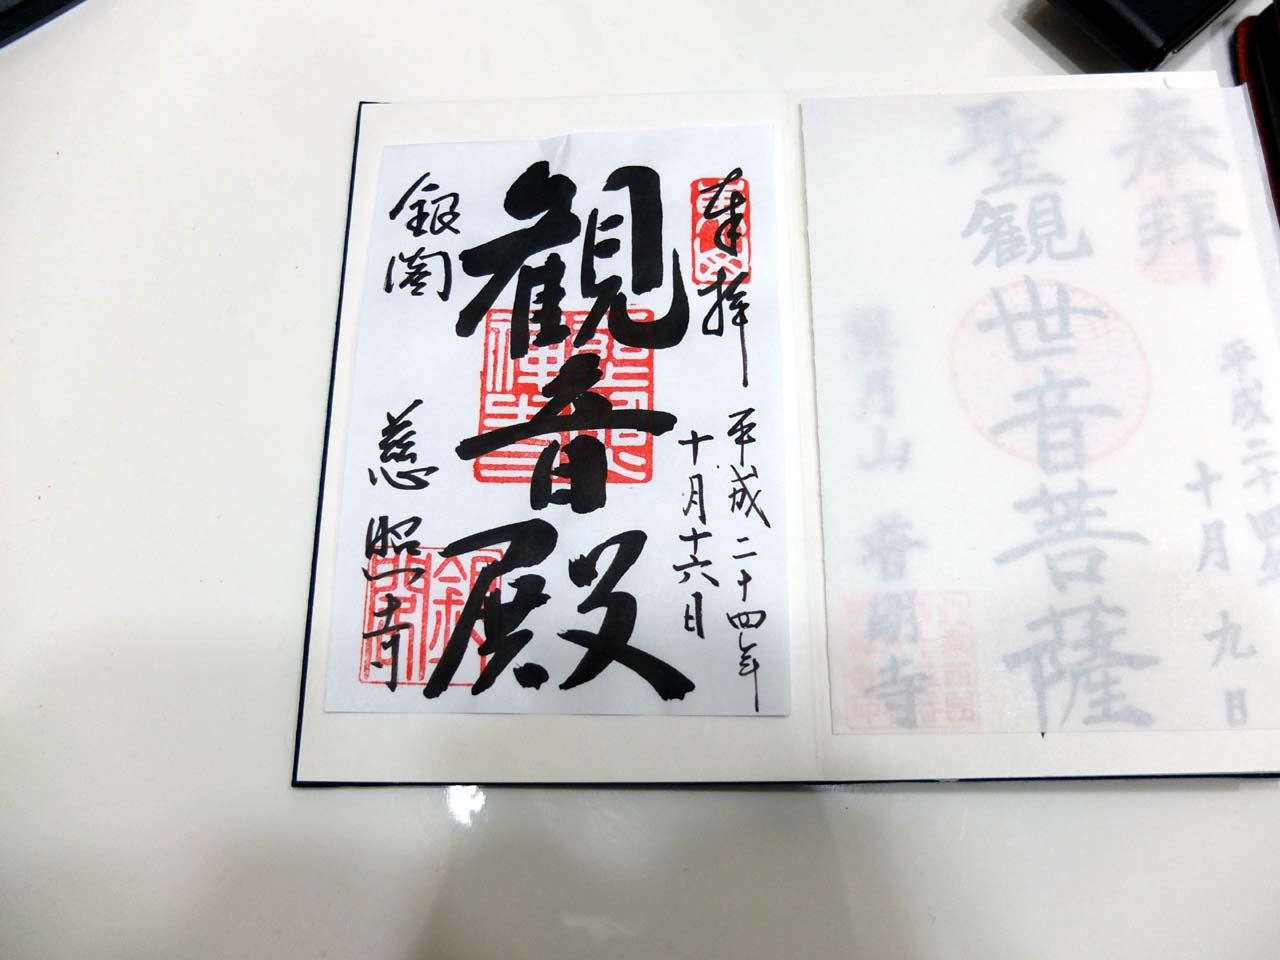 奉拝
聖観世音菩薩
平成二十四年
十月九日
山普明寺
奉拝
平成二十四年
十月十六日
観音殿
銀閣
慈照寺